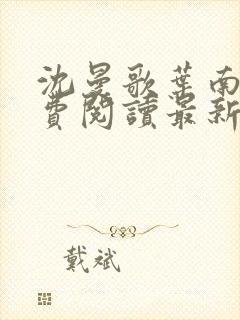 沈曼歌葉南
費閱讀最新
戴斌